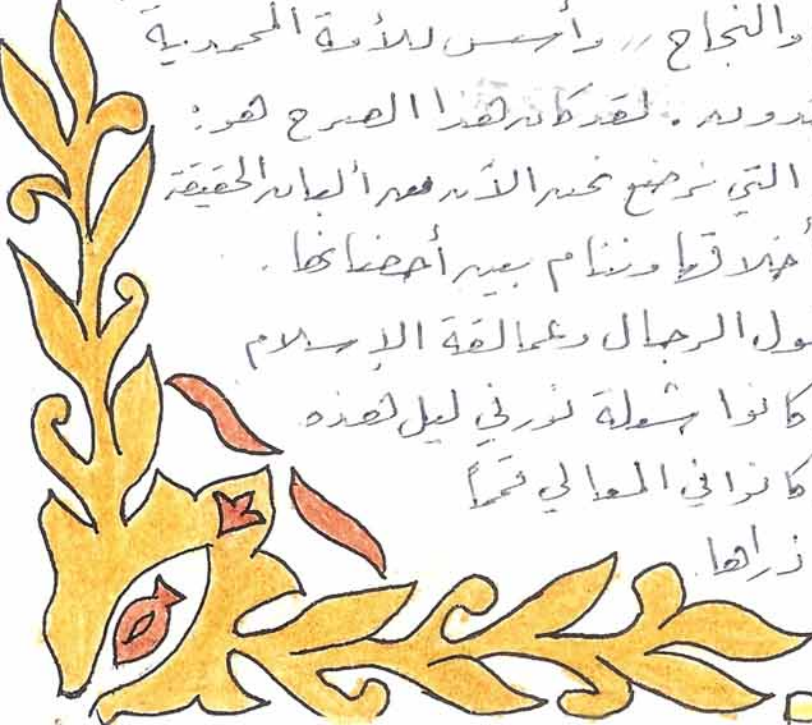 والنجاح ,, وأسس للأمة المحمدية
لقد كان هذا الصرح هو:
التي نرضع نحن الآن من ألبان الحقيقة
أخلاقها وننام بين أحضانها .
ول الرجال وعمالقة الإسلام
كانوا شعلة نور في ليل هذه
كانوا في المعالي قمراً
ذراها .